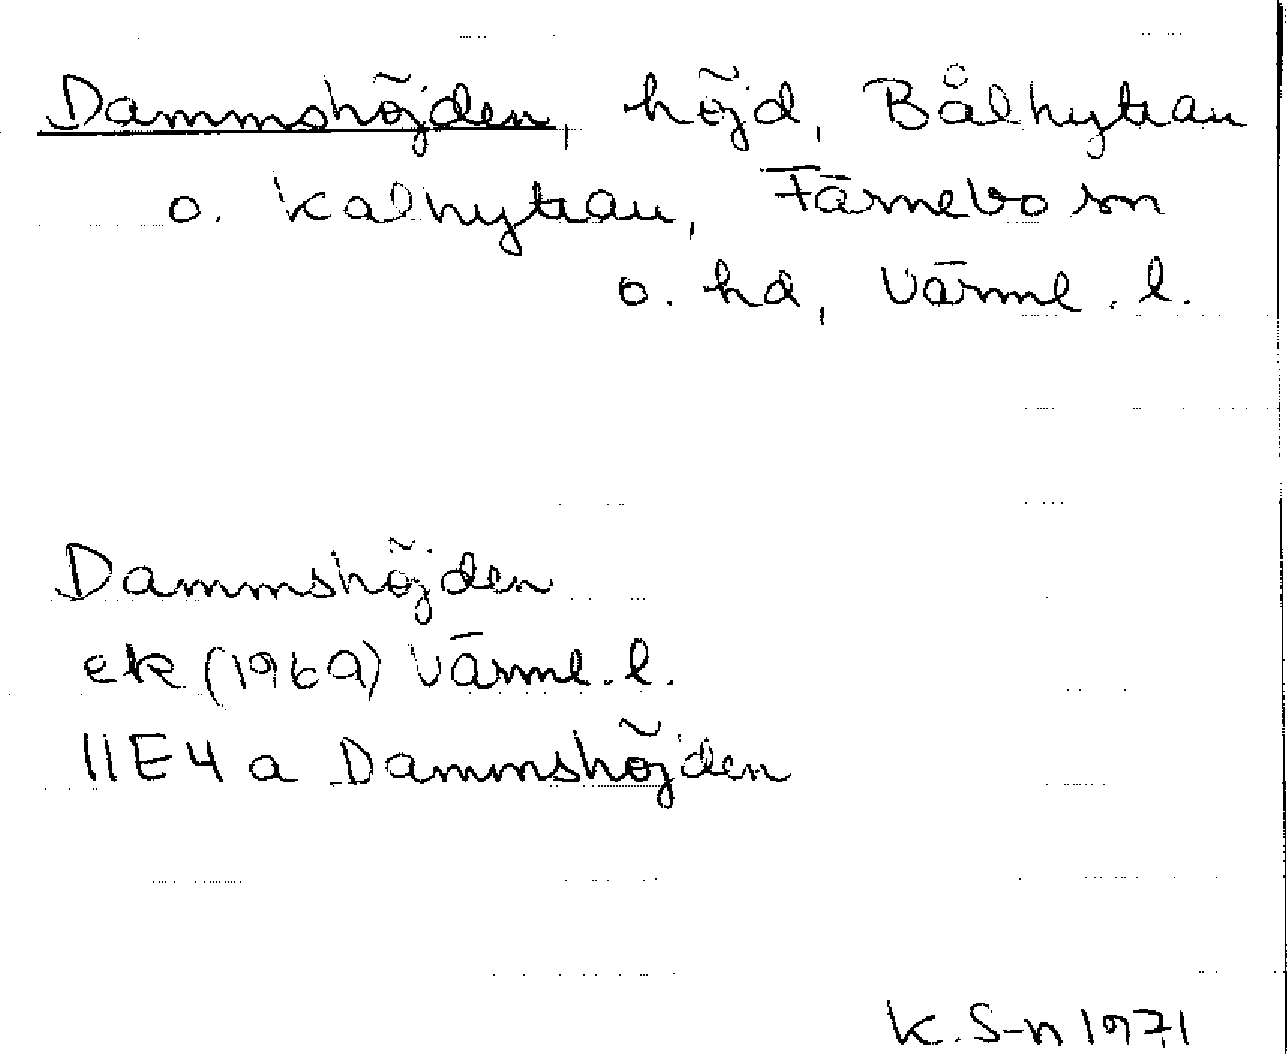 Dammshöjden, höjd, Bålhyttan
o. Kalhyttan, Färnebo sn
o. hd, Värml. l.
Dammshöjden
ek (1969) Värml. l.
11E4 a Dammshöjden
K. S-n 1971